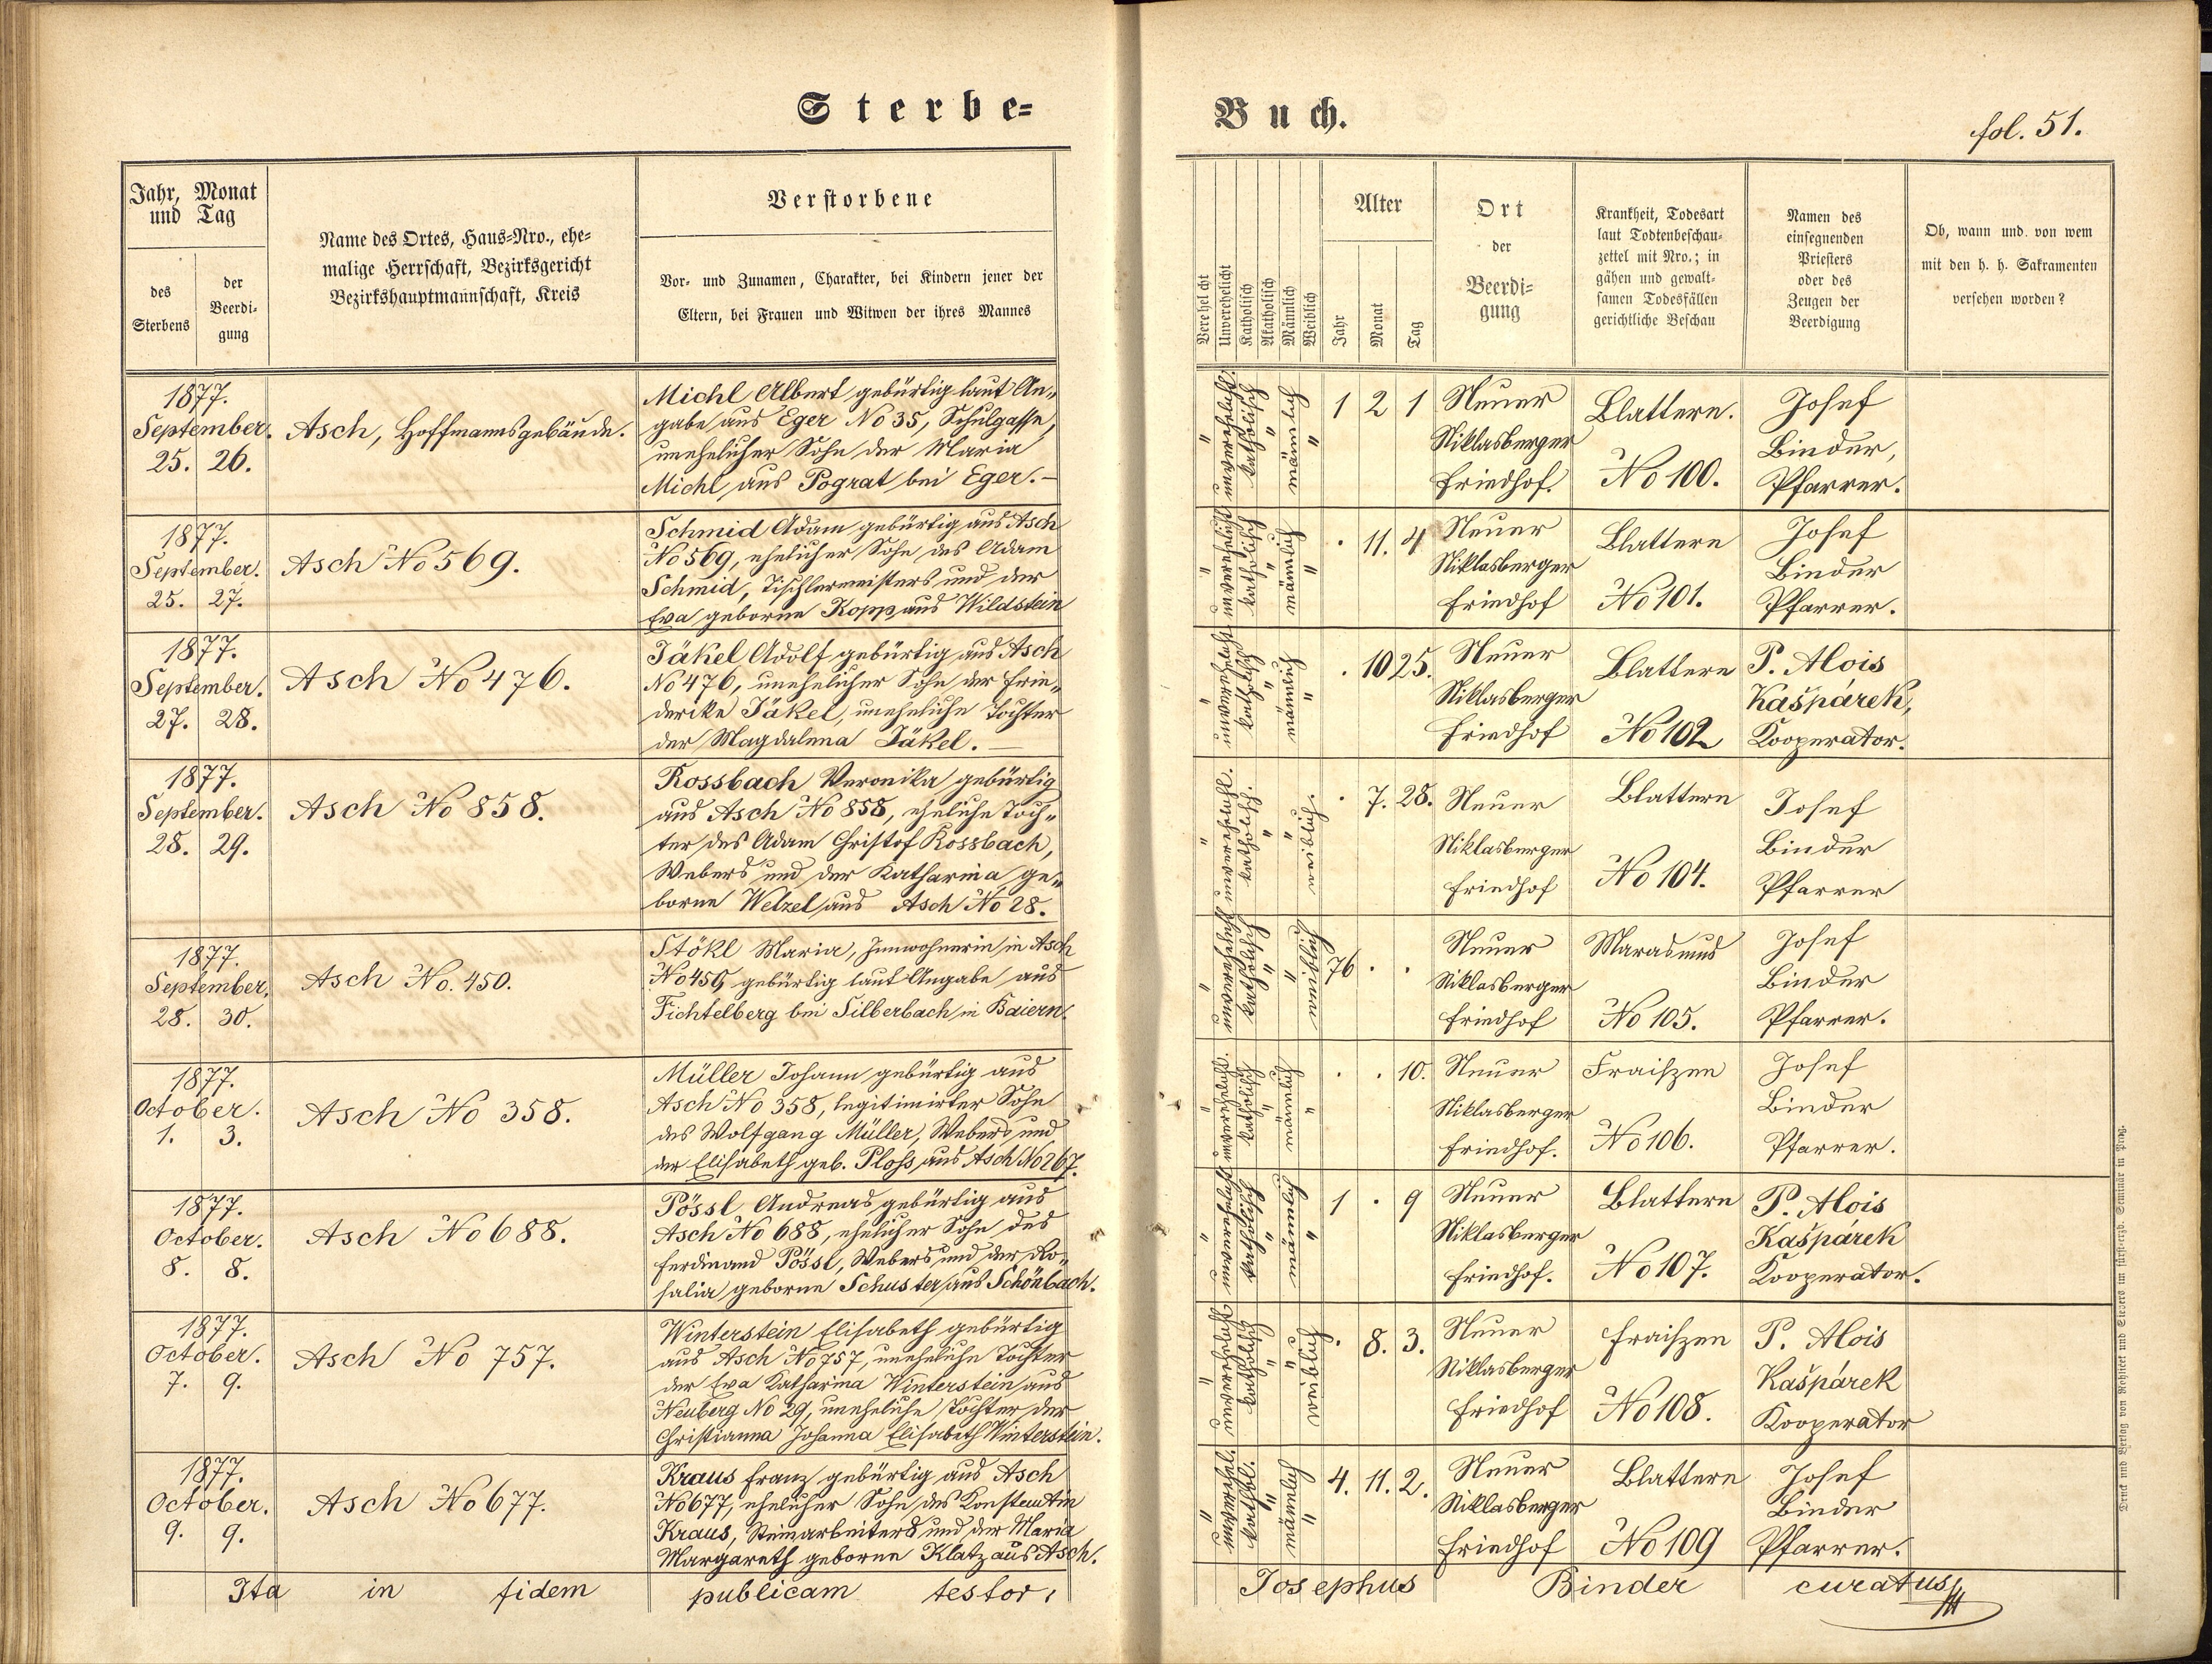 Sterbe-
Buch.
fol. 51.
Jahr, Monat
und Tag
des
Sterbens
der
Beerdi-
gung
Name des Ortes, Haus-Nro., ehe-
malige Herrschaft, Bezirksgericht
Bezirkshauptmannschaft, Kreis
Verstorbene
Vor- und Zunamen, Charakter, bei Kindern jener der
Eltern, bei Frauen und Witwen der ihres Mannes
Verehelicht
Unverehelicht
Katholisch
Akatholisch
Männlich
Weiblich
Alter
Jahr
Monat
Tag
Ort
der
Beerdi-
gung
Krankheit, Todesart
laut Todtenbeschau-
zettel mit Nro.; in
gähen und gewalt-
samen Todesfällen
gerichtliche Beschau
Namen des
einsegnenden
Priesters
oder des
Zeugen der
Beerdigung
Ob, wann und von wem
mit den h. h. Sakramenten
versehen worden?
1877.
September.
25. 26.
Asch, Hoffmannsgebäude.
Michl Albert gebürtig laut An-
gabe aus Eger No 35, Schulgasse,
unehelicher Sohn der Maria
Michl aus Pograt bei Eger. -
" unverehelicht. katholisch " männlich "
1 2 1
Neuer
Niklasberger
Friedhof.
Blattern.
No 100.
Josef
Binder,
Pfarrer.
1877.
September.
25. 27.
Asch No 569.
Schmid Adam gebürtig aus Asch
No 569, ehelicher Sohn des Adam
Schmid, Tischlermeisters und der
Eva geborne Kopp aus Wildstein
" unverehelicht katholisch " männlich "
. 11. 4
Neuer
Niklasberger
Friedhof
Blattern
No 101.
Josef
Binder
Pfarrer.
1877.
September.
27. 28.
Asch No 476.
Jäkel Adolf gebürtig aus Asch
No 476, unehelicher Sohn der Frie-
derike Jäkel, uneheliche Tochter
der Magdalena Jäkel. -
" unverehelicht katholisch " männlich "
. 10 25.
Neuer
Niklasberger
Friedhof
Blattern
No 102
P. Alois
Kašpárek,
Kooperator.
1877.
September.
28. 29.
Asch No 858.
Rossbach Veronika gebürtig
aus Asch No 858, eheliche Toch-
ter des Adam Christof Rossbach,
Webers und der Katharina ge-
borne Wetzel aus Asch No 28.
" unverehel. katholisch. " " weiblich.
. 7. 28.
Neuer
Niklasberger
Friedhof
Blattern
No 104.
Josef
Binder
Pfarrer
1877.
September.
28. 30.
Asch No. 450.
Stökl Maria, Innwohnerin in Asch
No 450, gebürtig laut Angabe aus
Fichtelberg bei Silberbach in Baiern.
" unverehelicht katholisch " " weiblich
76 . .
Neuer
Niklasberger
Friedhof
Marasmus
No 105.
Josef
Binder
Pfarrer.
1877.
October.
1. 3.
Asch No 358.
Müller Johann gebürtig aus
Asch No 358, legitimirter Sohn
des Wolfgang Müller, Webers und
der Elisabeth geb. Ploß aus Asch No 267.
" unverehel. katholisch " männlich "
. . 10.
Neuer
Niklasberger
Friedhof.
Fraiszen
No 106.
Josef
Binder
Pfarrer.
1877.
October.
8. 8.
Asch No 688.
Pössl Andreas gebürtig aus
Asch No 688, ehelicher Sohn des
Ferdinand Pössl, Webers und der Ro-
salia geborne Schuster aus Schönbach.
" unverehelicht katholisch " männlich "
1 . 9
Neuer
Niklasberger
Friedhof.
Blattern
No 107.
P. Alois
Kašpárek
Kooperator.
1877.
October.
7. 9.
Asch No 757.
Winterstein Elisabeth gebürtig
aus Asch No 757, uneheliche Tochter
der Eva Katharina Winterstein aus
Neuberg No 29, uneheliche Tochter der
Christianna Johanna Elisabeth Winterstein.
" unverehelicht katholisch " " weiblich
. 8. 3.
Neuer
Niklasberger
Friedhof
Fraiszen
No 108.
P. Alois
Kašpárek
Kooperator
1877.
October.
9. 9.
Asch No 677.
Kraus Franz gebürtig aus Asch
No 677, ehelicher Sohn des Konstantin
Kraus, Steinarbeiters und der Maria
Margareth geborne Klatz aus Asch.
" unverehel. kathol. " männlich "
4. 11. 2.
Neuer
Niklasberger
Friedhof
Blattern
No 109
Josef
Binder
Pfarrer.
Ita in fidem publicam testor:
Josephus Binder curatus
Druck und Verlag von Rohliček und Sievers im fürst-erzb. Seminär in Prag.